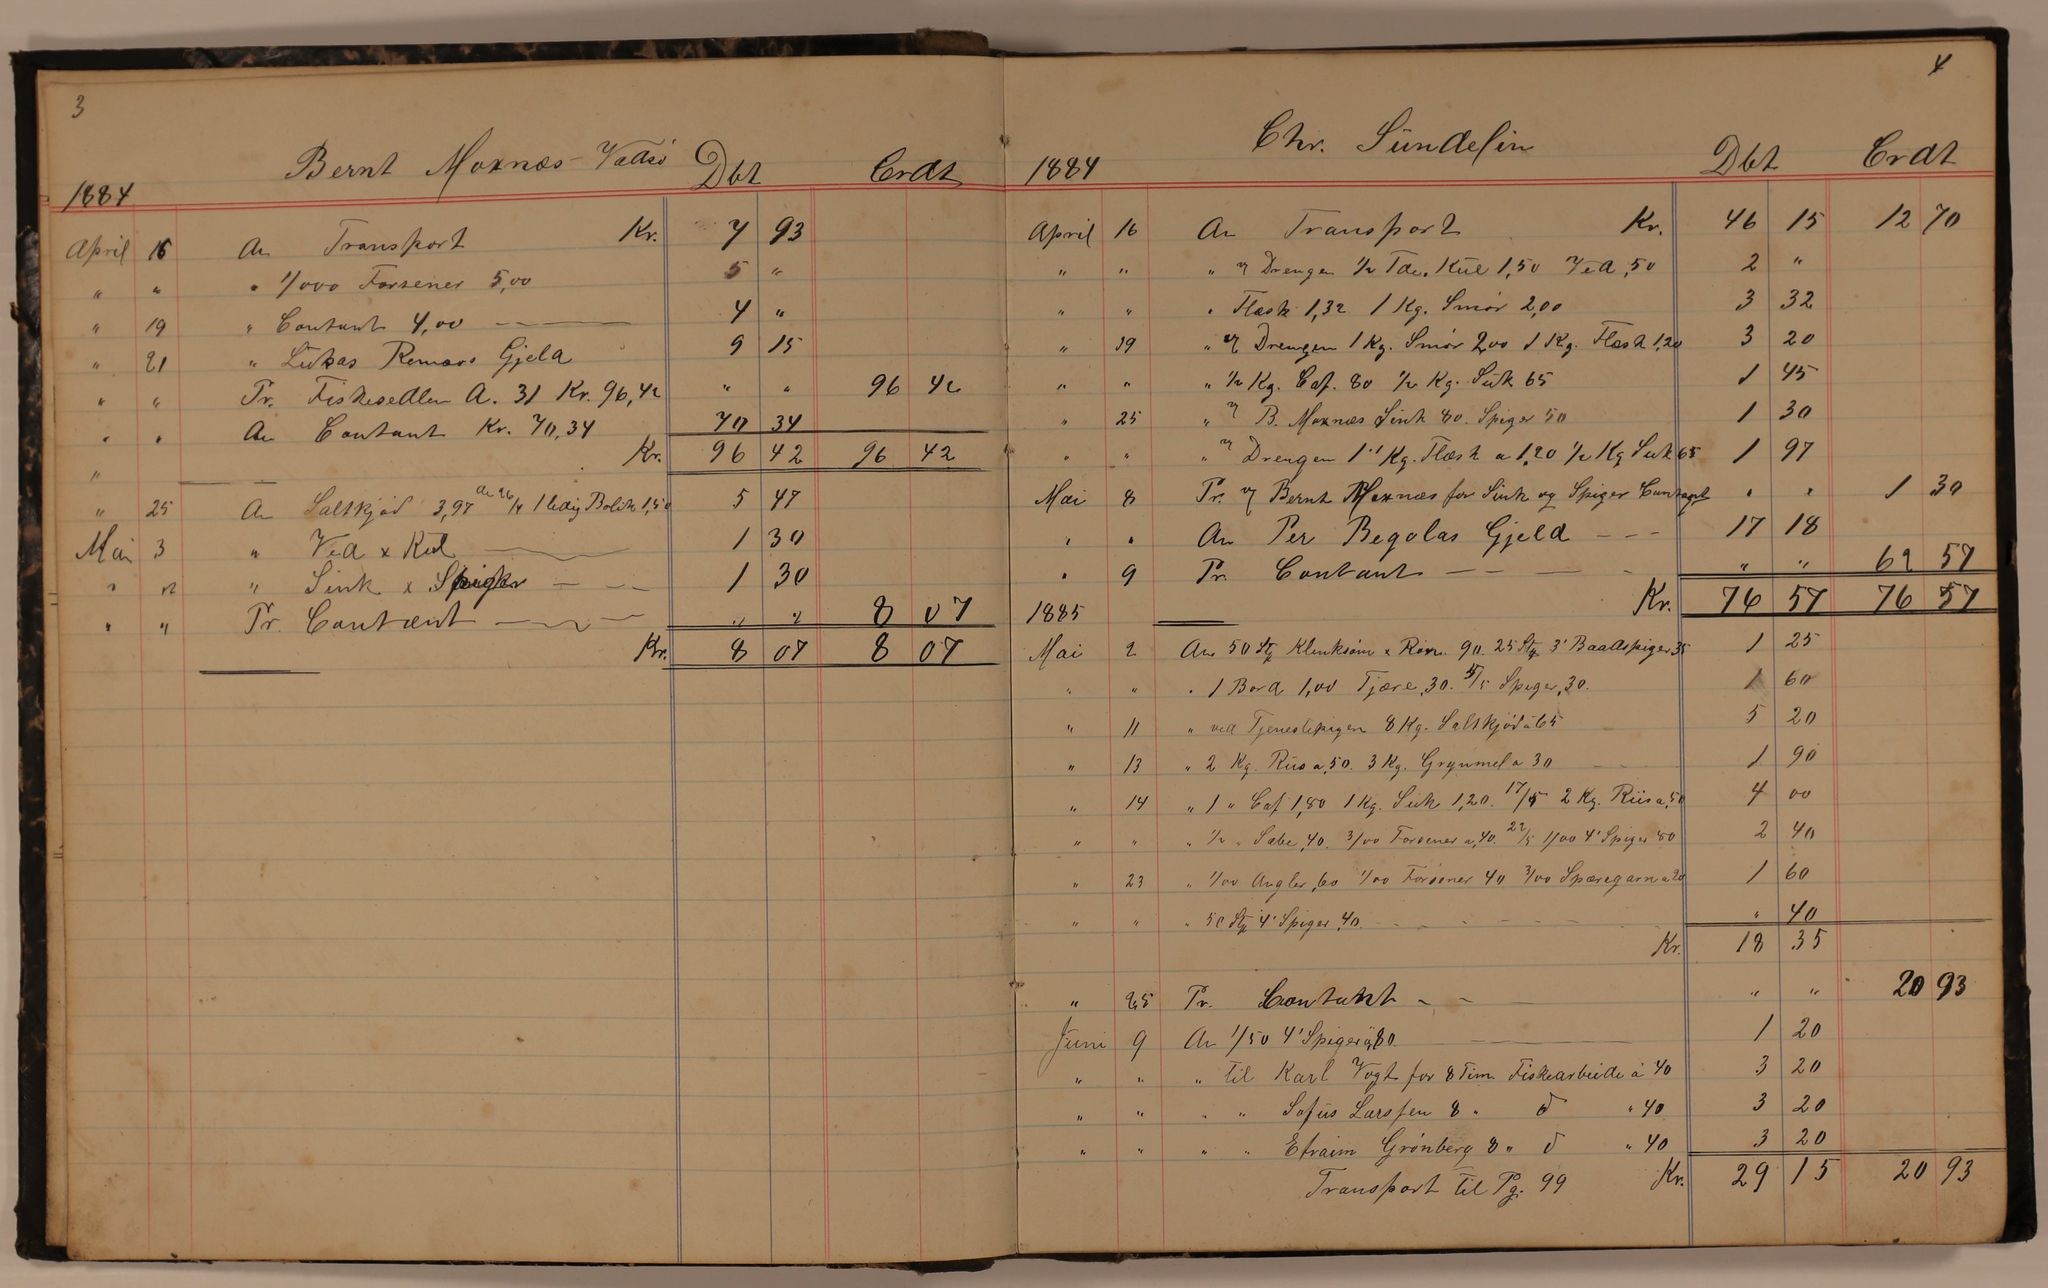 3
Bernt Moxnæs Vadsö Dbt Crdt
1884
April 16 An Transport Kr. 7 93
" " " 1/000 Forsener 5,00 5 "
" 19 " Contant 4,00 4 "
" 21 " Lükas Remaos Gjeld 9 15
" " Pr. Fiskesedlen A. 31 Kr. 96,42 " " 96 42
" " An Contant Kr. 70,34 70 34
" Kr. 96 42 96 42
" 25 An Saltkjød 3,97 26/4 1 ledig Balih 1,50 5 47
Mai 3 " Ved & Kul 1 30
" " " Sink & Spiger 1 30
" " Pr. Contant " " 8 07
Kr. 8 07 8 07
4
Chr. Sündelin
1884 Dbt Crdt
April 16 An Transport Kr. 46 15 12 70
" " " v Drengen 1/2 Tde. Kül 1,50 Ved ,50 2 "
" " " Flæsk 1,32 1 Kg. Smør 2,00 3 32
" 19 " v Drengen 1 Kg. Smør 2,00 1 Kg. Flæsk 1,20 3 20
" " " 1/2 Kg. Caf. 80 1/2 Kg. Suk 65 1 45
" 25 " v B. Moxnæs Sink 80. Spiger 50 1 30
" " " v Drengen 1.1 Kg. Flæsk a 1,20 1/2 Kg Suk 65 1 97
Mai 8 Pr. v Bernt Moxnæs for Sink og Spiger Contant " " 1 30
" " An Per Begolas Gjeld 17 18
" 9 Pr. Contant " " 62 57
1885 Kr. 76 57 76 57
Mai 2 An 50 Stk Klinksøm & Ron. 90. 25 Stk 3" Baadspiger 35 1 25
" " " 1 Bord 1,00 Tjære ,30. 5/5 Spiger ,30. 1 60
" 11 " ved Tjenestepigen 8 Kg. Saltkjød a 65 5 20
" 13 " 2 Kg. Riis a ,50. 3 Kg. Grynmel a 30 1 90
" 14 " 1 " Caf 1,80 1 Kg. Suk 1,20. 17/5 2 Kg. Riis a ,50 4 00
" " " 1/2 " Sæbe ,40. 3/00 Forsener a ,40. 22/5 1/00 4" Spiger 80 2 40
" 23 " 1/00 Angler ,60 1/00 Forsener 40 3/00 Spæregarn a 20 1 60
" " " 50 Stk 4" Spiger ,40. " 40
Kr. 18 35
" 25 Pr. Contant " " 20 93
Juni 9 An 1/50 4" Spiger a ,80. 1 20
" " " til Karl Vogt for 8 Tim. Fiskearbeide à 40 3 20
" " " " Sofus Larssen 8 " d " 40 3 20
" " " " Efraim Grønberg 8 " d " 40 3 20
Transport til Pg. 99 Kr. 29 15 20 93